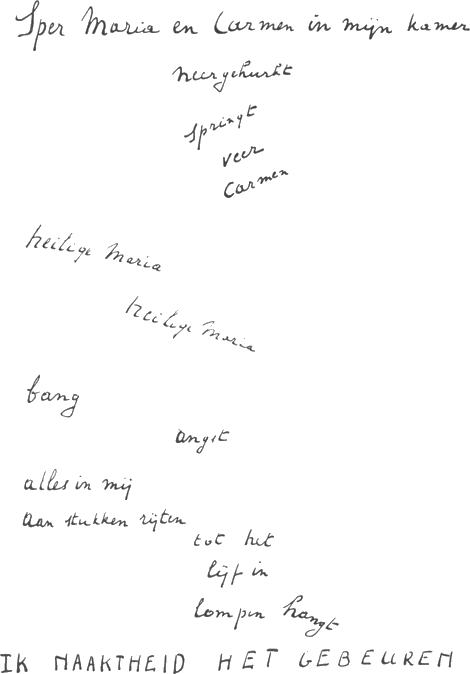 Sper Maria en Carmen in mijn kamer
neergehurkt
springt
veer
Carmen
heilige Maria
heilige Maria
bang
angst
alles in mij
aan stukken rijten
tot het
lijf in
lompen hangt
IK NAAKTHEID HET GEBEUREN